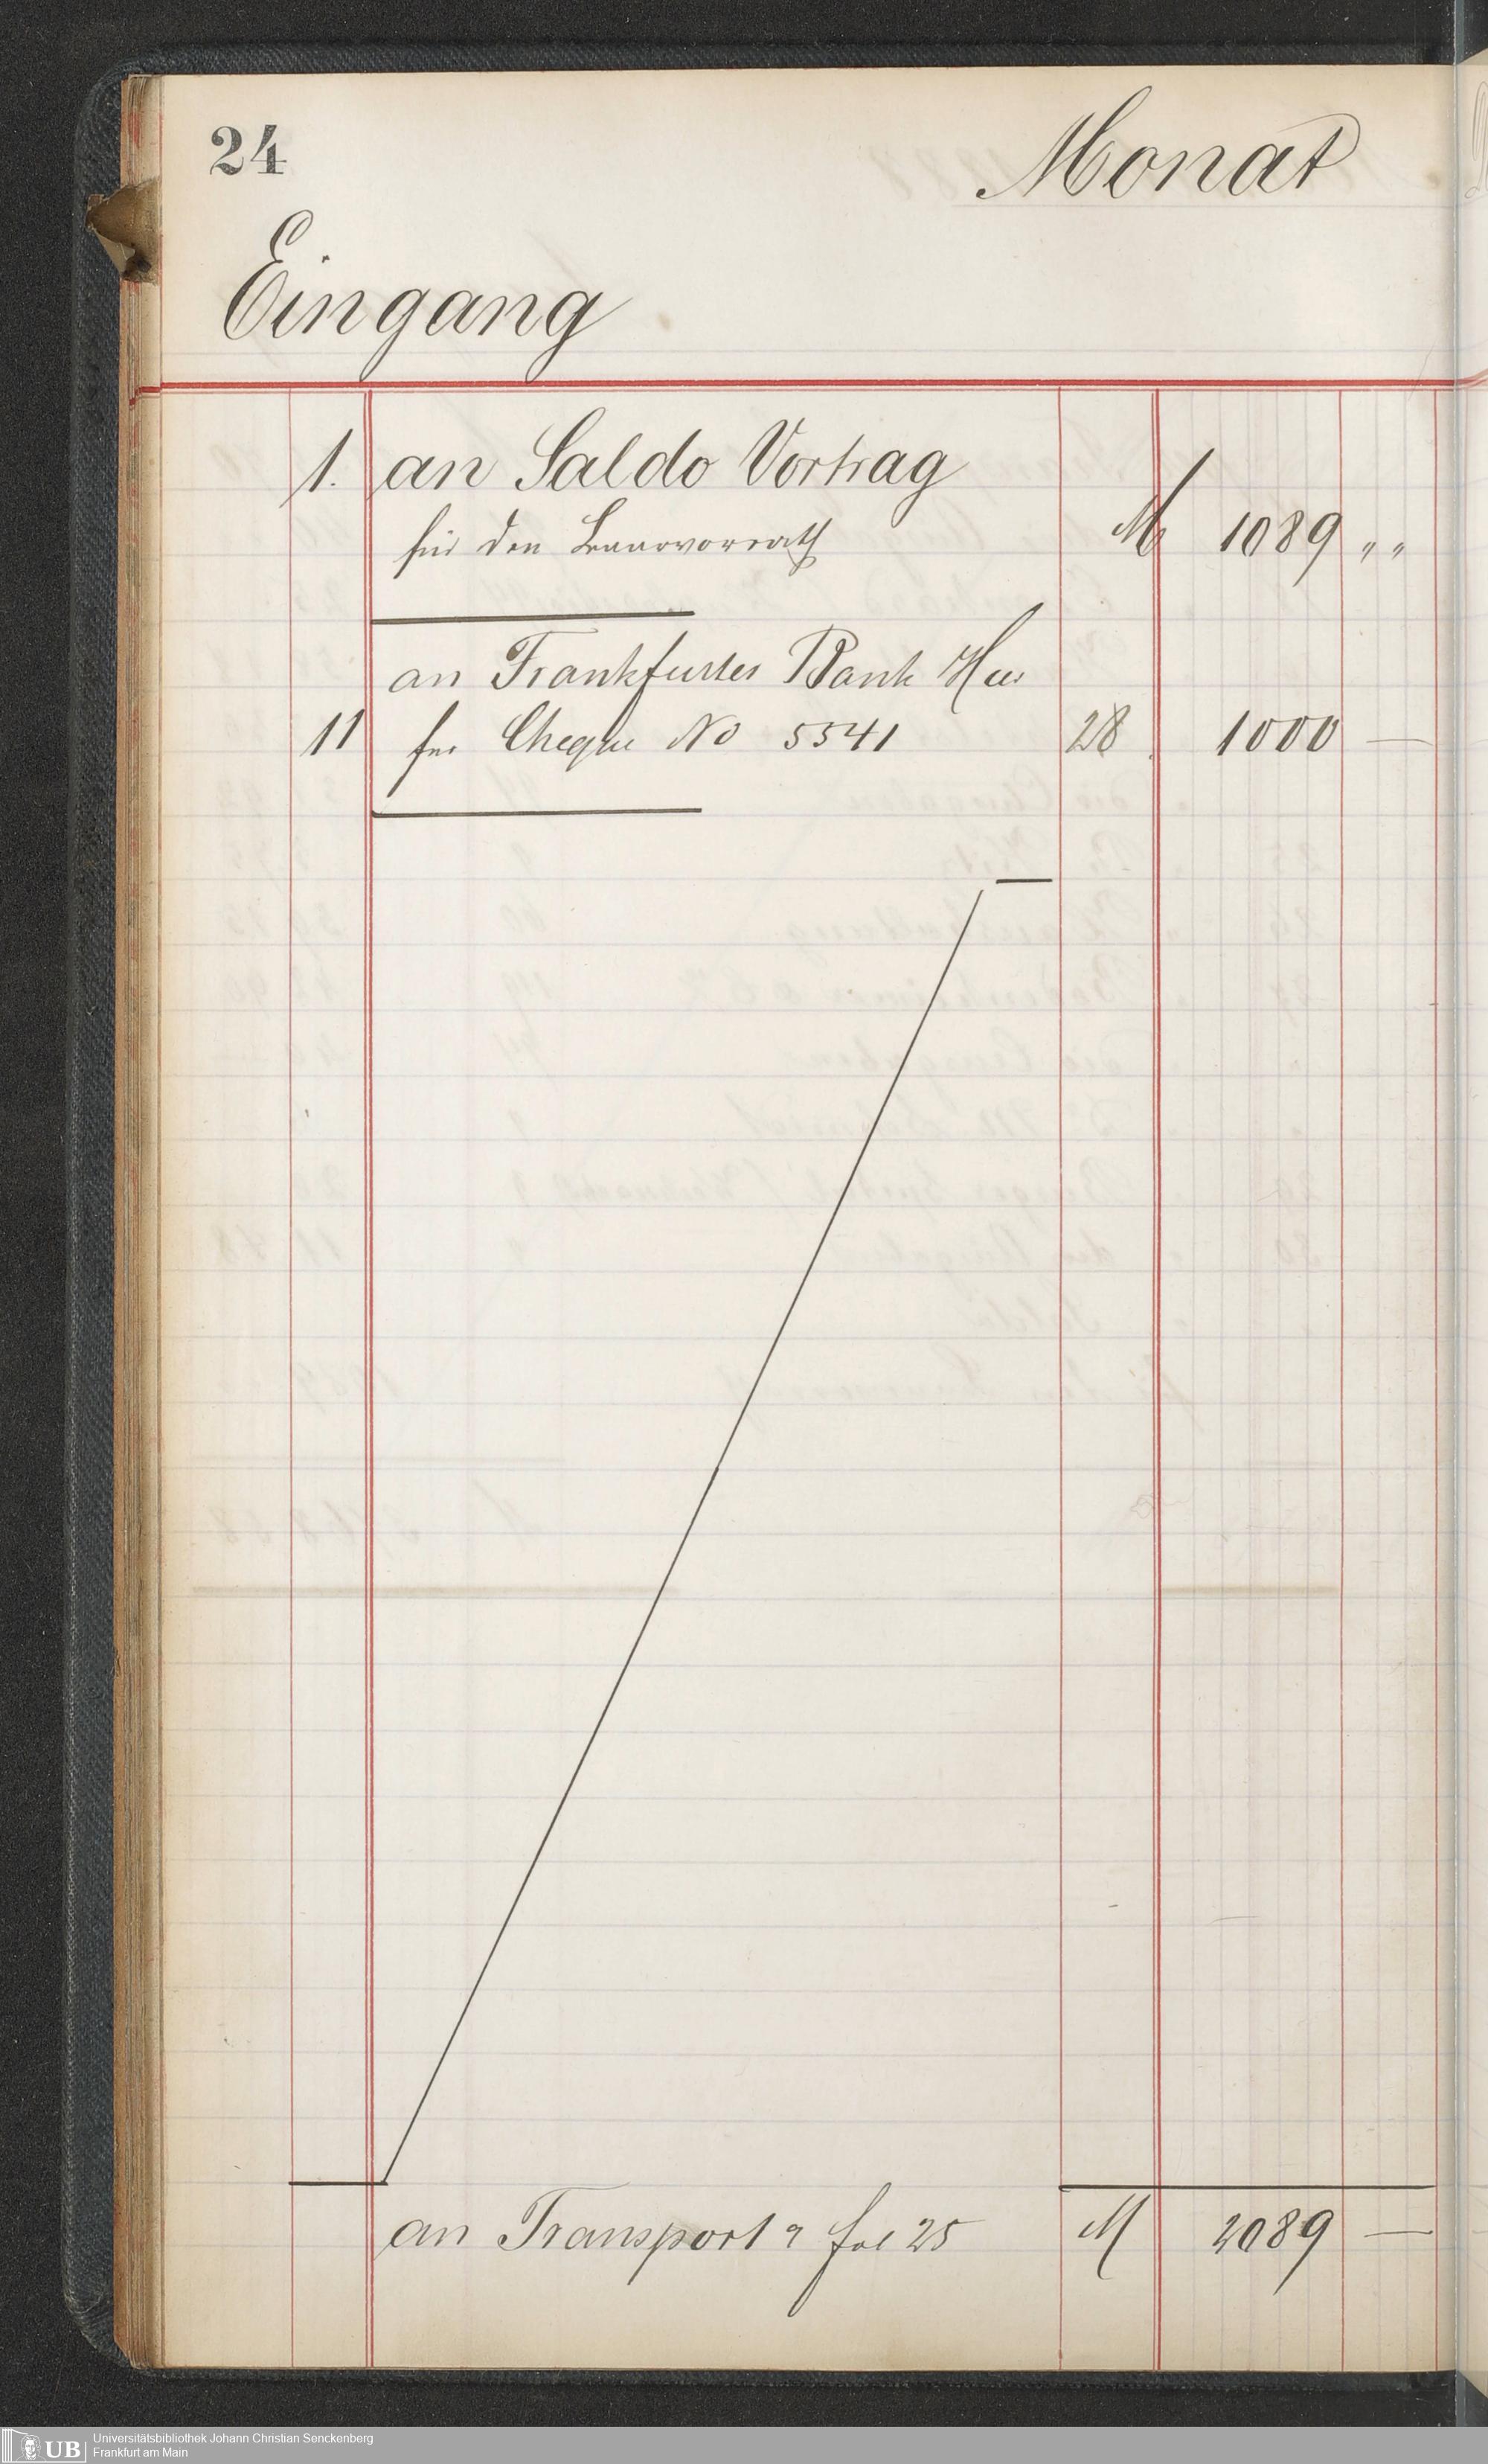 24
Monat
Eingang
1. an Saldo Vortrag
für den Baarvorrath M 1089 " "
an Frankfurter Bank Hier
11 für Cheque No 5541 28 1000 —
an Transport a fol 25 M 2089 —
UB Universitätsbibliothek Johann Christian Senckenberg
Frankfurt am Main